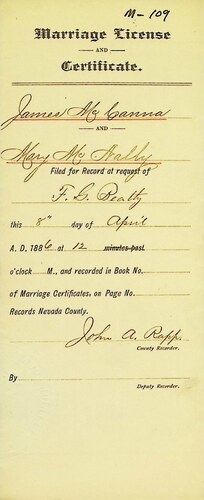 M-109
Marriage License
AND
Certificate.
James McCanna
AND
Mary McNally
Filed for Record at request of
F. G. Beatty
this 8" day of April
A. D. 1886 at 12 minutes past
o'clock M., and recorded in Book No.
of Marriage Certificates, on Page No.
Records Nevada County.
John A. Rapp
County Recorder.
By
Deputy Recorder.